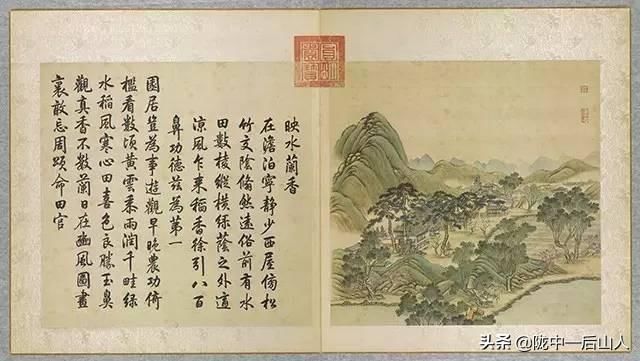 映水蘭香
在澹泊寧靜少西屋傍松
竹交陰翛然遠俗前有水
田數棱縱橫綠蔭之外適
涼風乍来稻香徐引八百
鼻功德茲為第一
園居豈為事遊觀早晚農功倚
檻看數頃黃雲黍雨潤千畦綠
水稻風寒心田喜色良勝玉鼻
觀真香不數蘭日在豳風圖畫
裏敢忘周頌命田官
头条 @陇中一后山人